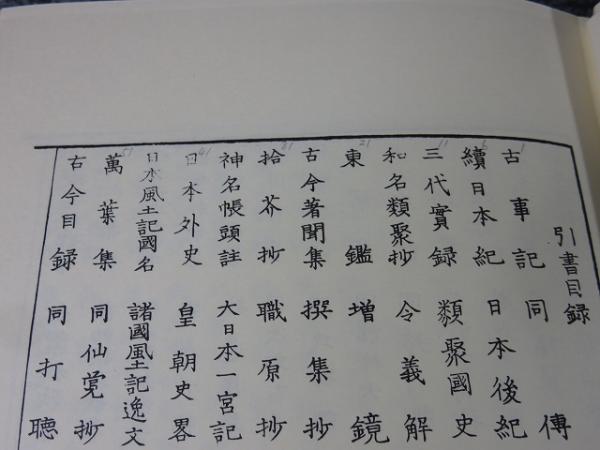 引書目録
古事記 同 傳
續日本紀 日本後紀
三代實録 類聚國史
和名類聚抄 令義解
東鑑 增鏡
古今著聞集 撰集抄
拾芥抄 職原抄
神名帳頭註 大日本一宮記
日本外史 皇朝史畧
日本風土記國名 諸國風土記逸文
萬葉集 同仙覚抄
古今目録 同打聴